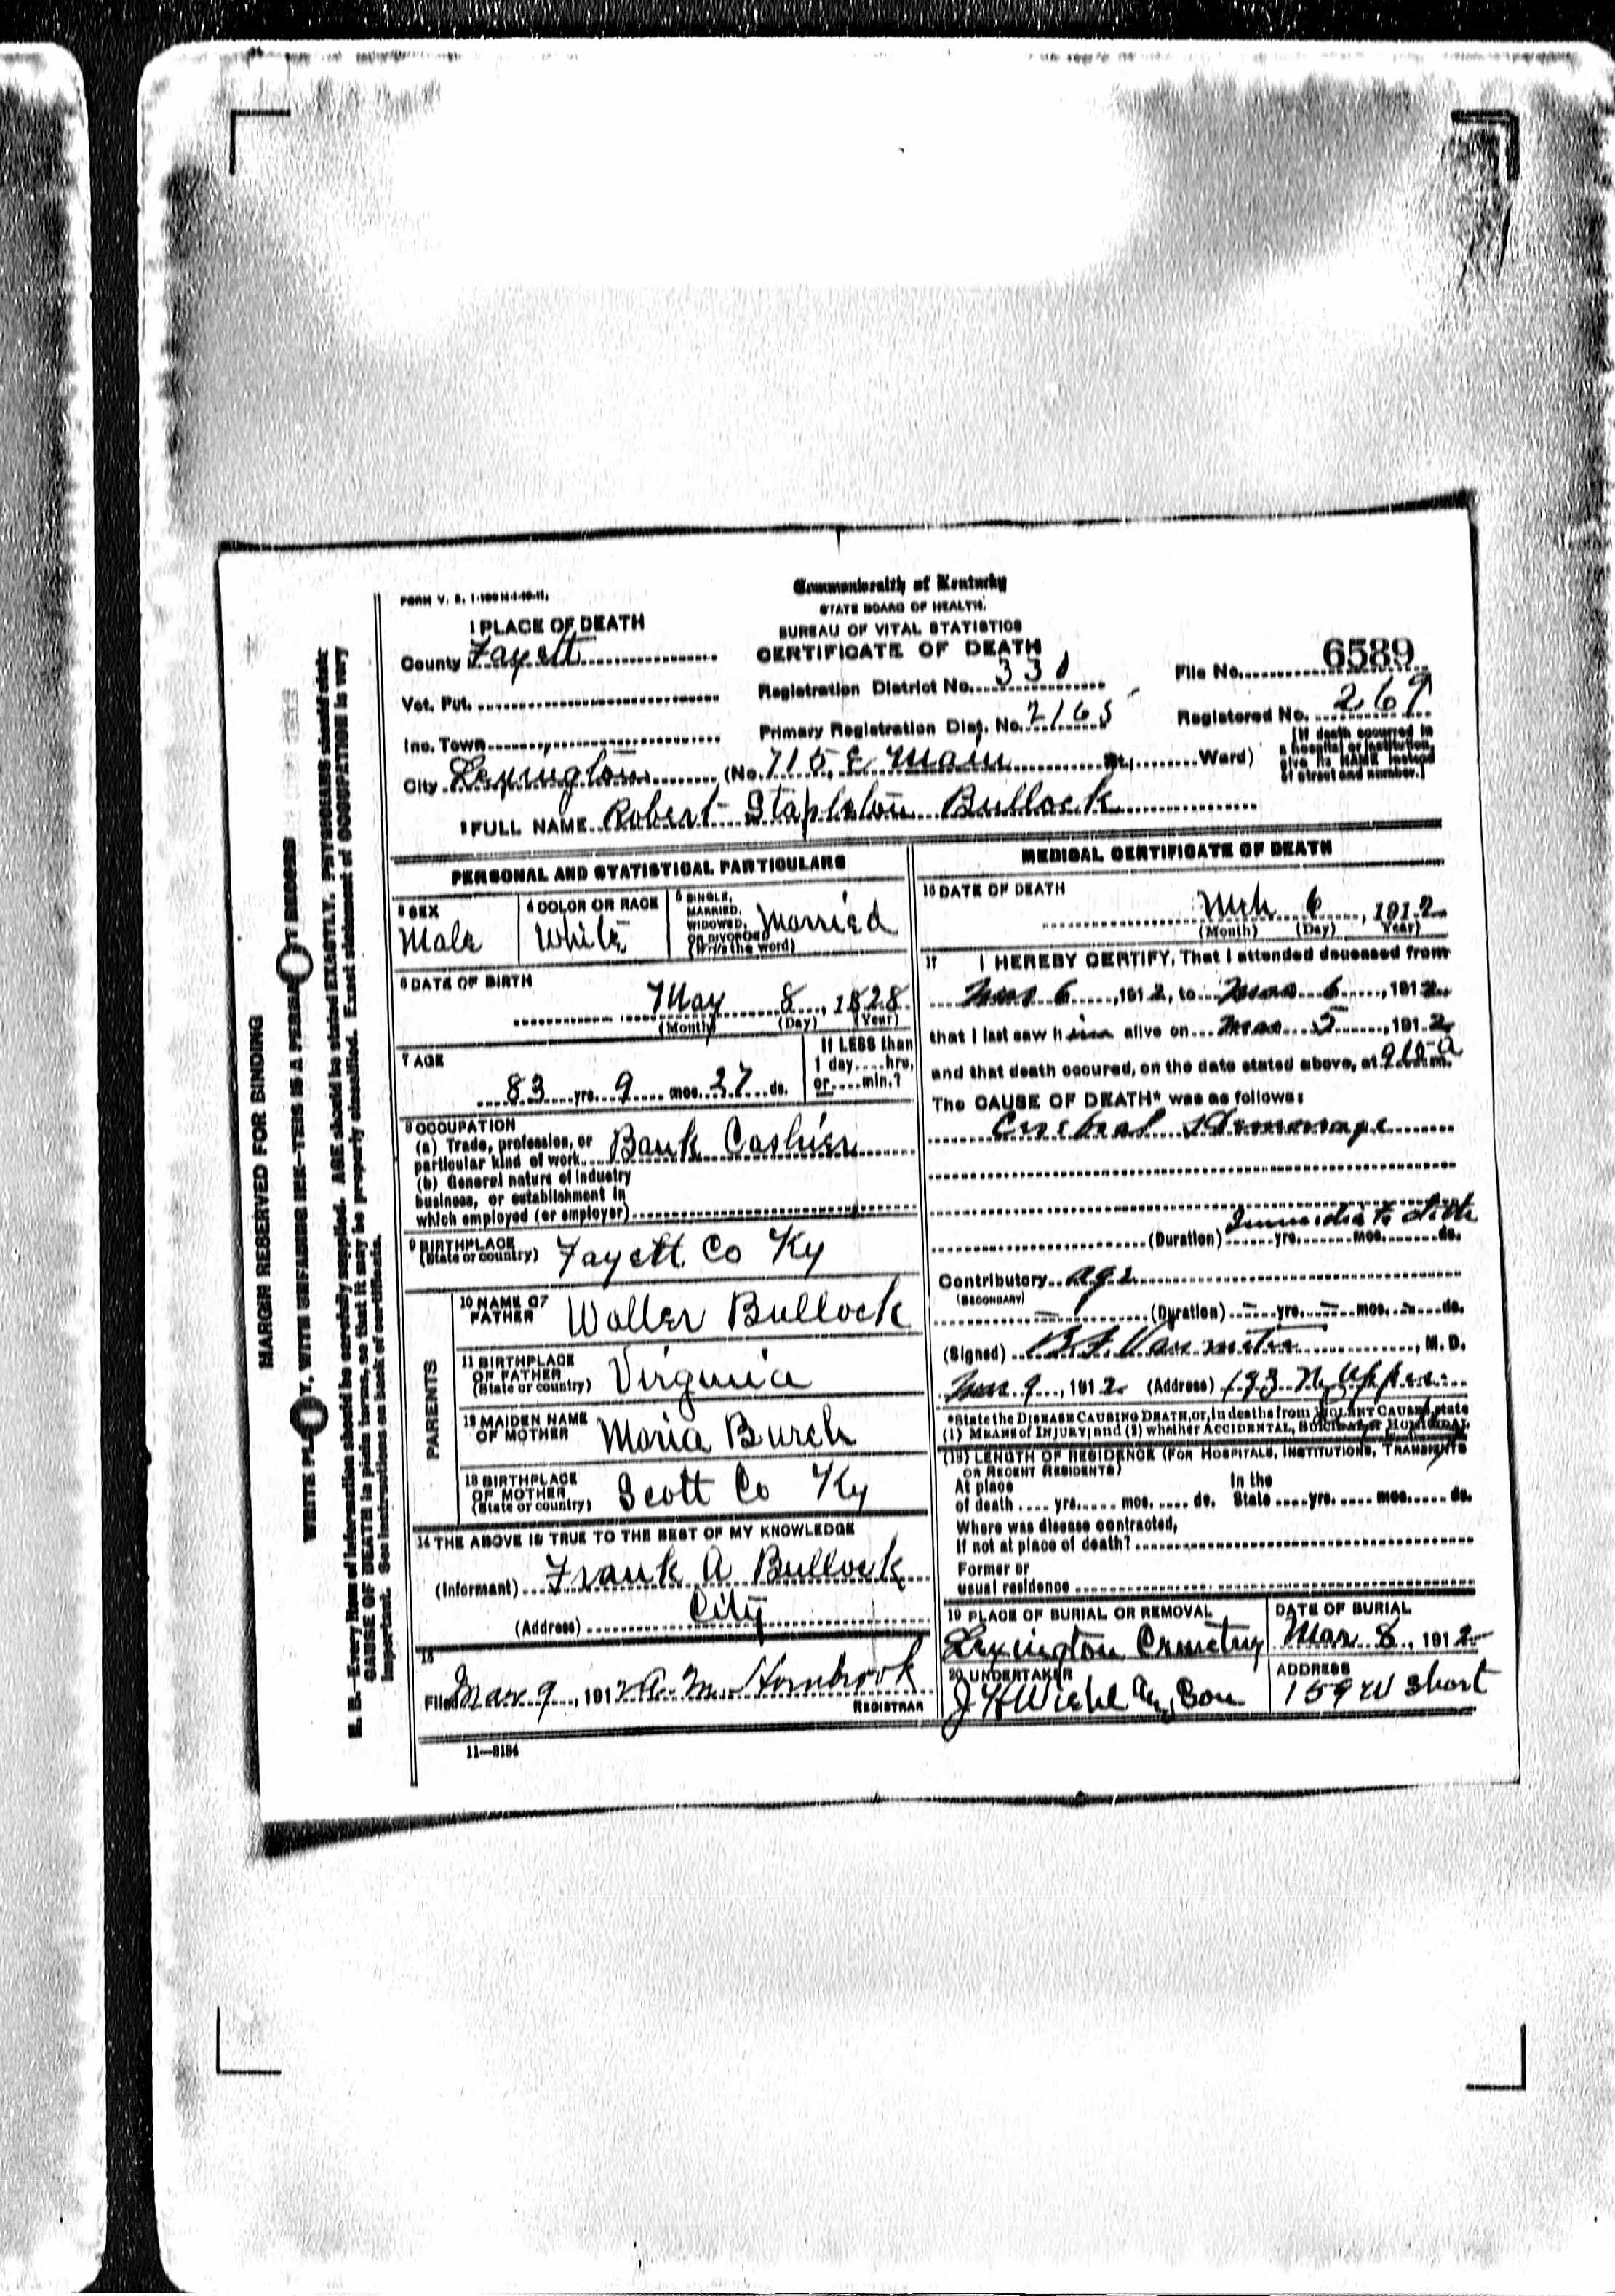 MARGIN RESERVED FOR BINDING
N. B.—Every item of information should be carefully supplied. AGE should be stated EXACTLY. PHYSICIANS should state
CAUSE OF DEATH in plain terms, so that it may be properly classified. Exact statement of OCCUPATION is very
important. See instructions on back of certificate.
Commonwealth of Kentucky
STATE BOARD OF HEALTH
BUREAU OF VITAL STATISTICS
CERTIFICATE OF DEATH
1 PLACE OF DEATH
County Fayett
Vot. Pct.
Inc. Town
City Lexington (No. 715 E Main St.; Ward)
Registration District No. 330
Primary Registration Dist. No. 2165
File No. 6589
Registered No. 269
[If death occurred in
a hospital or institution,
give its NAME instead
of street and number.]
2 FULL NAME Robert Stapleton Bullock
PERSONAL AND STATISTICAL PARTICULARS
3 SEX Male
4 COLOR OR RACE White
5 SINGLE, MARRIED, WIDOWED, OR DIVORCED (Write the word) Married
6 DATE OF BIRTH
May 8, 1828
(Month) (Day) (Year)
7 AGE
83 yrs. 9 mos. 27 ds.
If LESS than
1 day....hrs.
or....min.?
8 OCCUPATION
(a) Trade, profession, or
particular kind of work Bank Cashier
(b) General nature of industry
business, or establishment in
which employed (or employer)
9 BIRTHPLACE
(State or country) Fayett Co Ky
PARENTS
10 NAME OF FATHER Waller Bullock
11 BIRTHPLACE OF FATHER (State or country) Virginia
12 MAIDEN NAME OF MOTHER Maria Burch
13 BIRTHPLACE OF MOTHER (State or country) Scott Co Ky
14 THE ABOVE IS TRUE TO THE BEST OF MY KNOWLEDGE
(Informant) Frank A Bullock
(Address) City
15
Filed Mar 9, 1912 A. M. Hornbrook
REGISTRAR
11—3184
MEDICAL CERTIFICATE OF DEATH
16 DATE OF DEATH
Mch 6, 1912
(Month) (Day) (Year)
17 I HEREBY CERTIFY, That I attended deceased from
Mar 6, 1912, to Mar 6, 1912
that I last saw him alive on Mar 5, 1912
and that death occured, on the date stated above, at 9 15 a m.
The CAUSE OF DEATH* was as follows:
Cerebral Hemorrage
(Duration) yrs. mos. ds.
Contributory age
(SECONDARY)
(Duration) yrs. mos. ds.
(Signed) B. F. Vanmeter, M. D.
Mar 9, 1912 (Address) 193 N. Upper
*State the DISEASE CAUSING DEATH, or, in deaths from VIOLENT CAUSES, state
(1) MEANS of INJURY; and (2) whether ACCIDENTAL, SUICIDAL, or HOMICIDAL
(18) LENGTH OF RESIDENCE (FOR HOSPITALS, INSTITUTIONS, TRANSIENTS
OR RECENT RESIDENTS)
At place In the
of death .... yrs. .... mos. .... ds. State .... yrs. .... mos. .... ds.
Where was disease contracted,
If not at place of death?
Former or
usual residence
19 PLACE OF BURIAL OR REMOVAL
Lexington Cemetery
DATE OF BURIAL
Mar 8, 1912
20 UNDERTAKER
ADDRESS
159 W Short